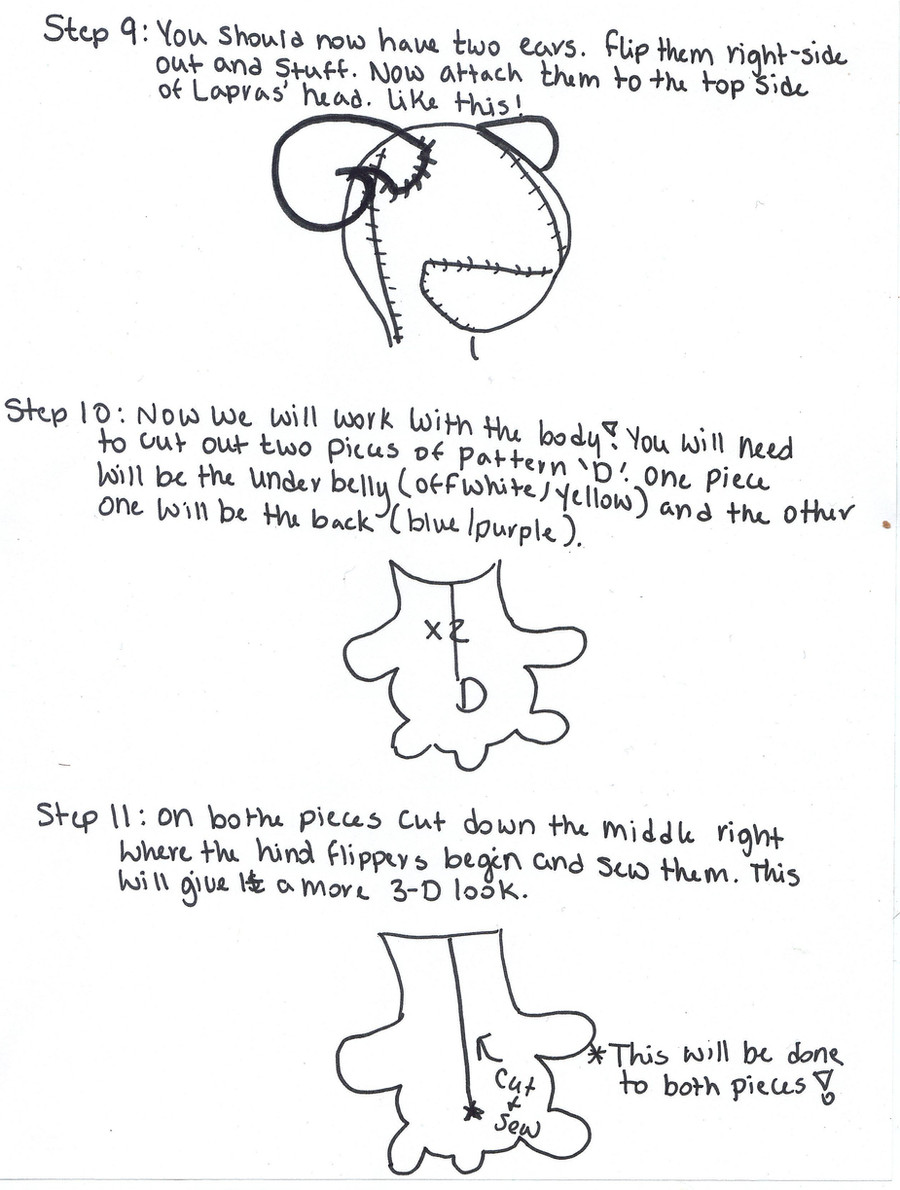 Step 9: You should now have two ears. Flip them right-side
out and stuff. Now attach them to the top side
of Lapras' head. Like this!
Step 10: Now we will work with the body! You will need
to cut out two pieces of pattern 'D'. One piece
will be the under belly (offwhite/yellow) and the other
one will be the back (blue/purple).
x2
D
Step 11: On bothe pieces cut down the middle right
where the hind flippers begin and sew them. This
will give it a more 3-D look.
*This will be done
to both pieces!
Cut
+
Sew
*